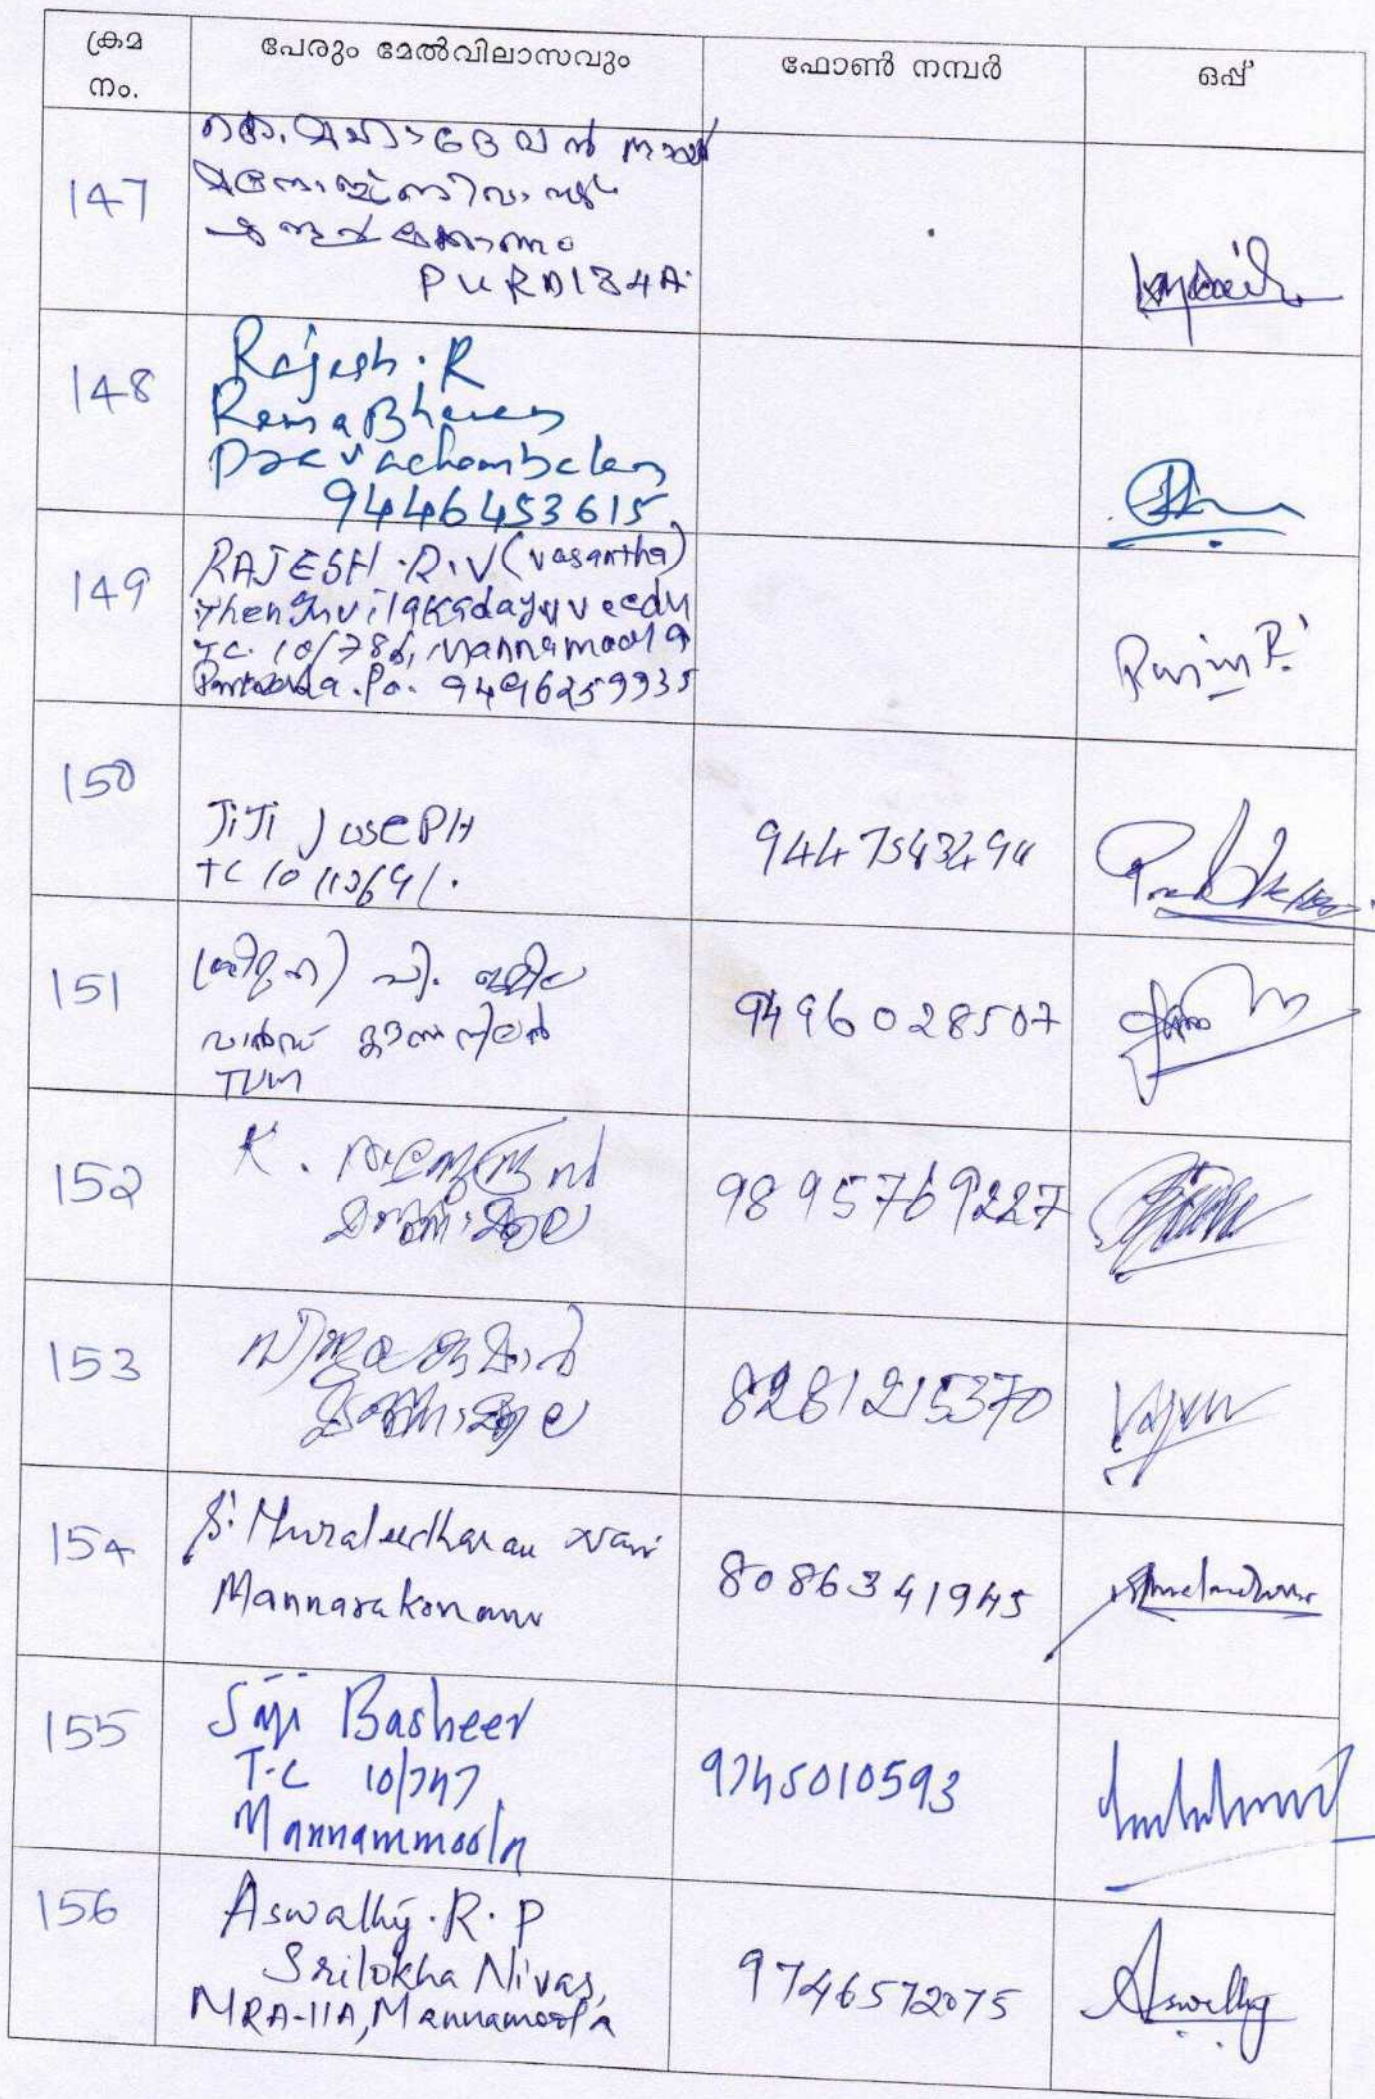 ക്രമ നം.
പേരും മേൽവിലാസവും
ഫോൺ നമ്പർ
ഒപ്പ്
147
കെ. മഹാദേവൻ നായർ
PURA 134A
148
Rajesh. R
Rema Bhavan
Pravachambalam
9446453615
149
RAJESH. R. V (vasantha)
TC. 10/786, Mannamoola
P.o. 9496259935
150
JiJi JosePH
9447543294
151
വാർഡ് കൗൺസിലർ
TVM
9496028507
152
K.
മണ്ണാമൂല
9895769227
153
വിജയകുമാർ
മണ്ണാമൂല
8281215370
154
S. Muraleedharan Nair
Mannarakonam
8086341945
155
Saji Basheer
T.C 10/747
Mannammoola
9745010593
156
Aswathy. R. P
Srilekha Nivas,
MRA-11A, Mannamoola
9746572075
Aswathy